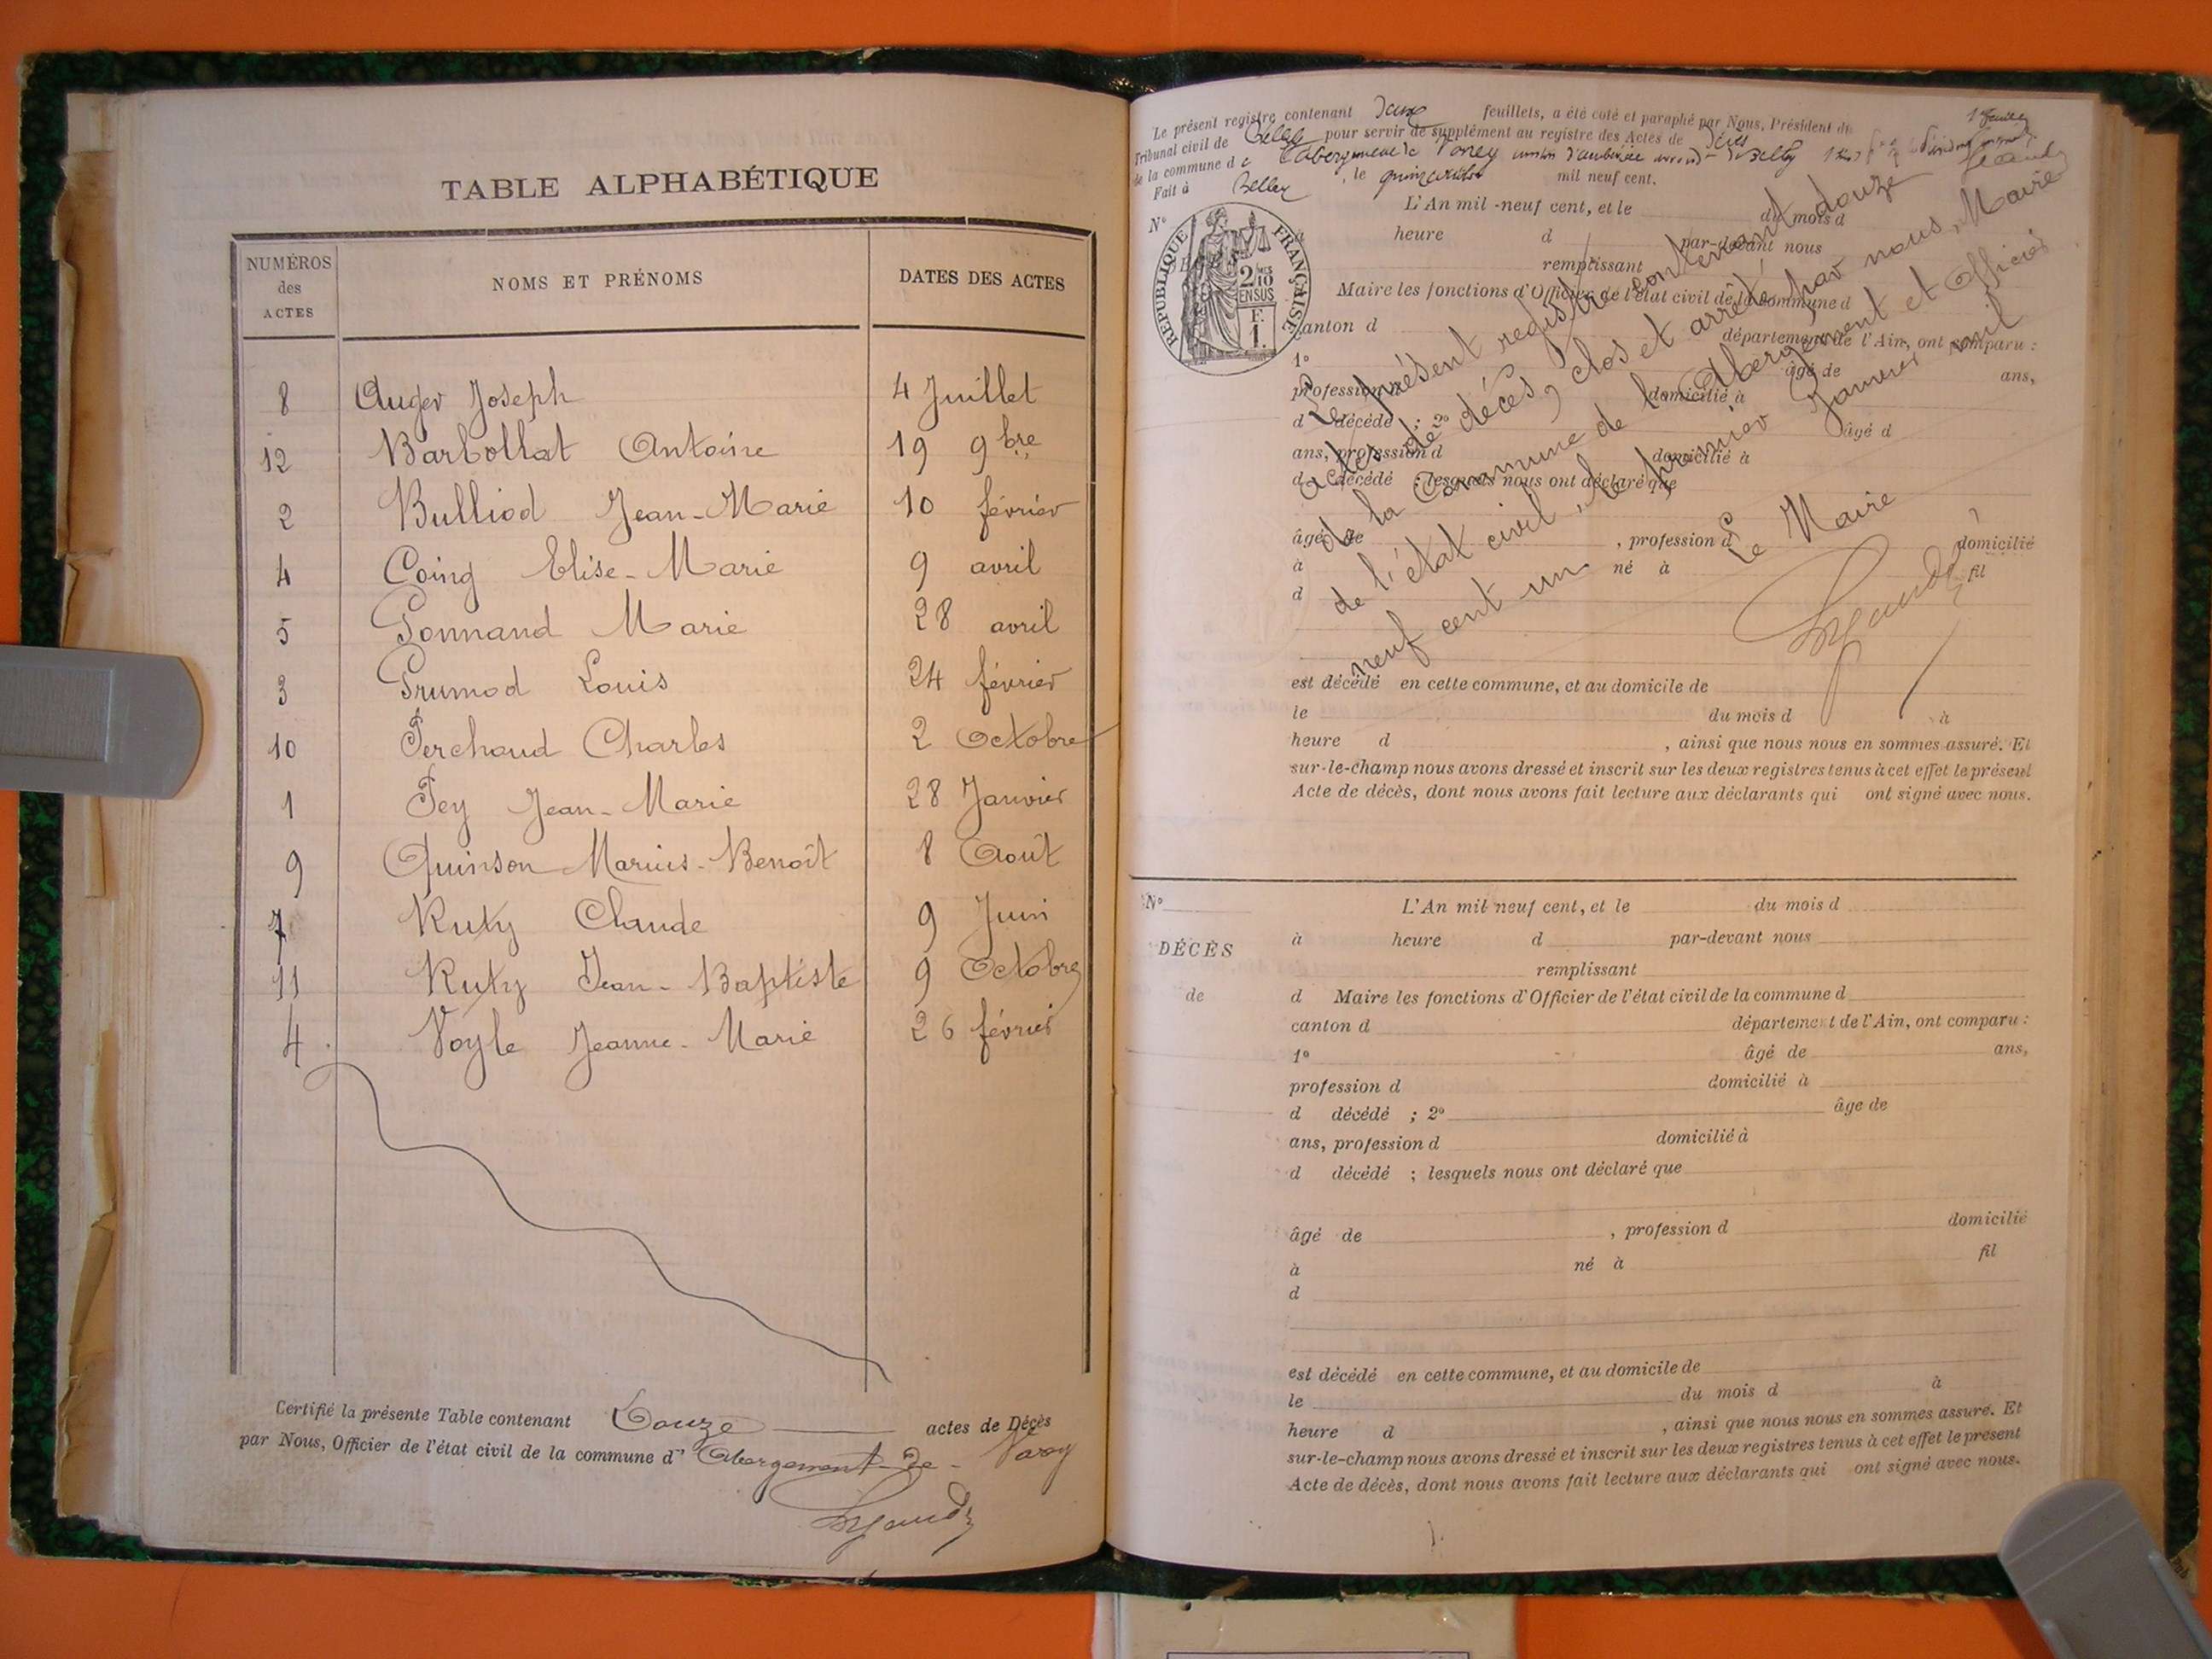 TABLE ALPHABÉTIQUE
NUMÉROS des ACTES
NOMS ET PRÉNOMS
DATES DES ACTES
8 Auger Joseph 4 Juillet
12 Barbollat Antoine 19 9bre
2 Bulliod Jean-Marie 10 février
4 Coing Elise-Marie 9 avril
5 Gonnand Marie 28 avril
3 Grumod Louis 24 février
10 Perchoud Charles 2 Octobre
1 Pey Jean-Marie 28 Janvier
9 Quinson Marius-Benoît 8 Août
7 Ruty Claude 9 Juin
11 Ruty Jean-Baptiste 9 Octobre
4 Voyle Jeanne-Marie 26 février
Certifié la présente Table contenant Douze actes de Décès
par Nous, Officier de l'état civil de la commune d' Abergement-de-Varey
Le présent registre contenant Deux feuillets, a été coté et paraphé par Nous, Président du
Tribunal civil de Belley pour servir de supplément au registre des Actes de Décès
de la commune de l'abergement de Varey
Fait à Belley, le quinze mil neuf cent.
N°
RÉPUBLIQUE FRANÇAISE
2/10 EN SUS
F. 1.
L'An mil-neuf cent, et le du mois d
à heure d par-devant nous
remplissant
Maire les fonctions d'Officier de l'état civil de la commune d
canton d département de l'Ain, ont comparu :
1° âgé de ans,
profession d domicilié à
d décédé ; 2° âgé d
ans, profession d domicilié à
d décédé ; lesquels nous ont déclaré que
âgé de , profession d domicilié
à né à fil
d
est décédé en cette commune, et au domicile de
le du mois d à
heure d , ainsi que nous nous en sommes assuré. Et
sur-le-champ nous avons dressé et inscrit sur les deux registres tenus à cet effet le présent
Acte de décès, dont nous avons fait lecture aux déclarants qui ont signé avec nous.
Le présent registre contenant douze
actes de décès, clos et arrêté par nous, Maire
de la Commune de l'Abergement et Officier
de l'état civil, le premier Janvier mil
neuf cent un
Le Maire
N° L'An mil neuf cent, et le du mois d
DÉCÈS
de
à heure d par-devant nous
remplissant
d Maire les fonctions d'Officier de l'état civil de la commune d
canton d département de l'Ain, ont comparu :
1° âgé de ans,
profession d domicilié à
d décédé ; 2° âge de
ans, profession d domicilié à
d décédé ; lesquels nous ont déclaré que
âgé de , profession d domicilié
à né à fil
d
est décédé en cette commune, et au domicile de
le du mois d à
heure d , ainsi que nous nous en sommes assuré. Et
sur-le-champ nous avons dressé et inscrit sur les deux registres tenus à cet effet le présent
Acte de décès, dont nous avons fait lecture aux déclarants qui ont signé avec nous.